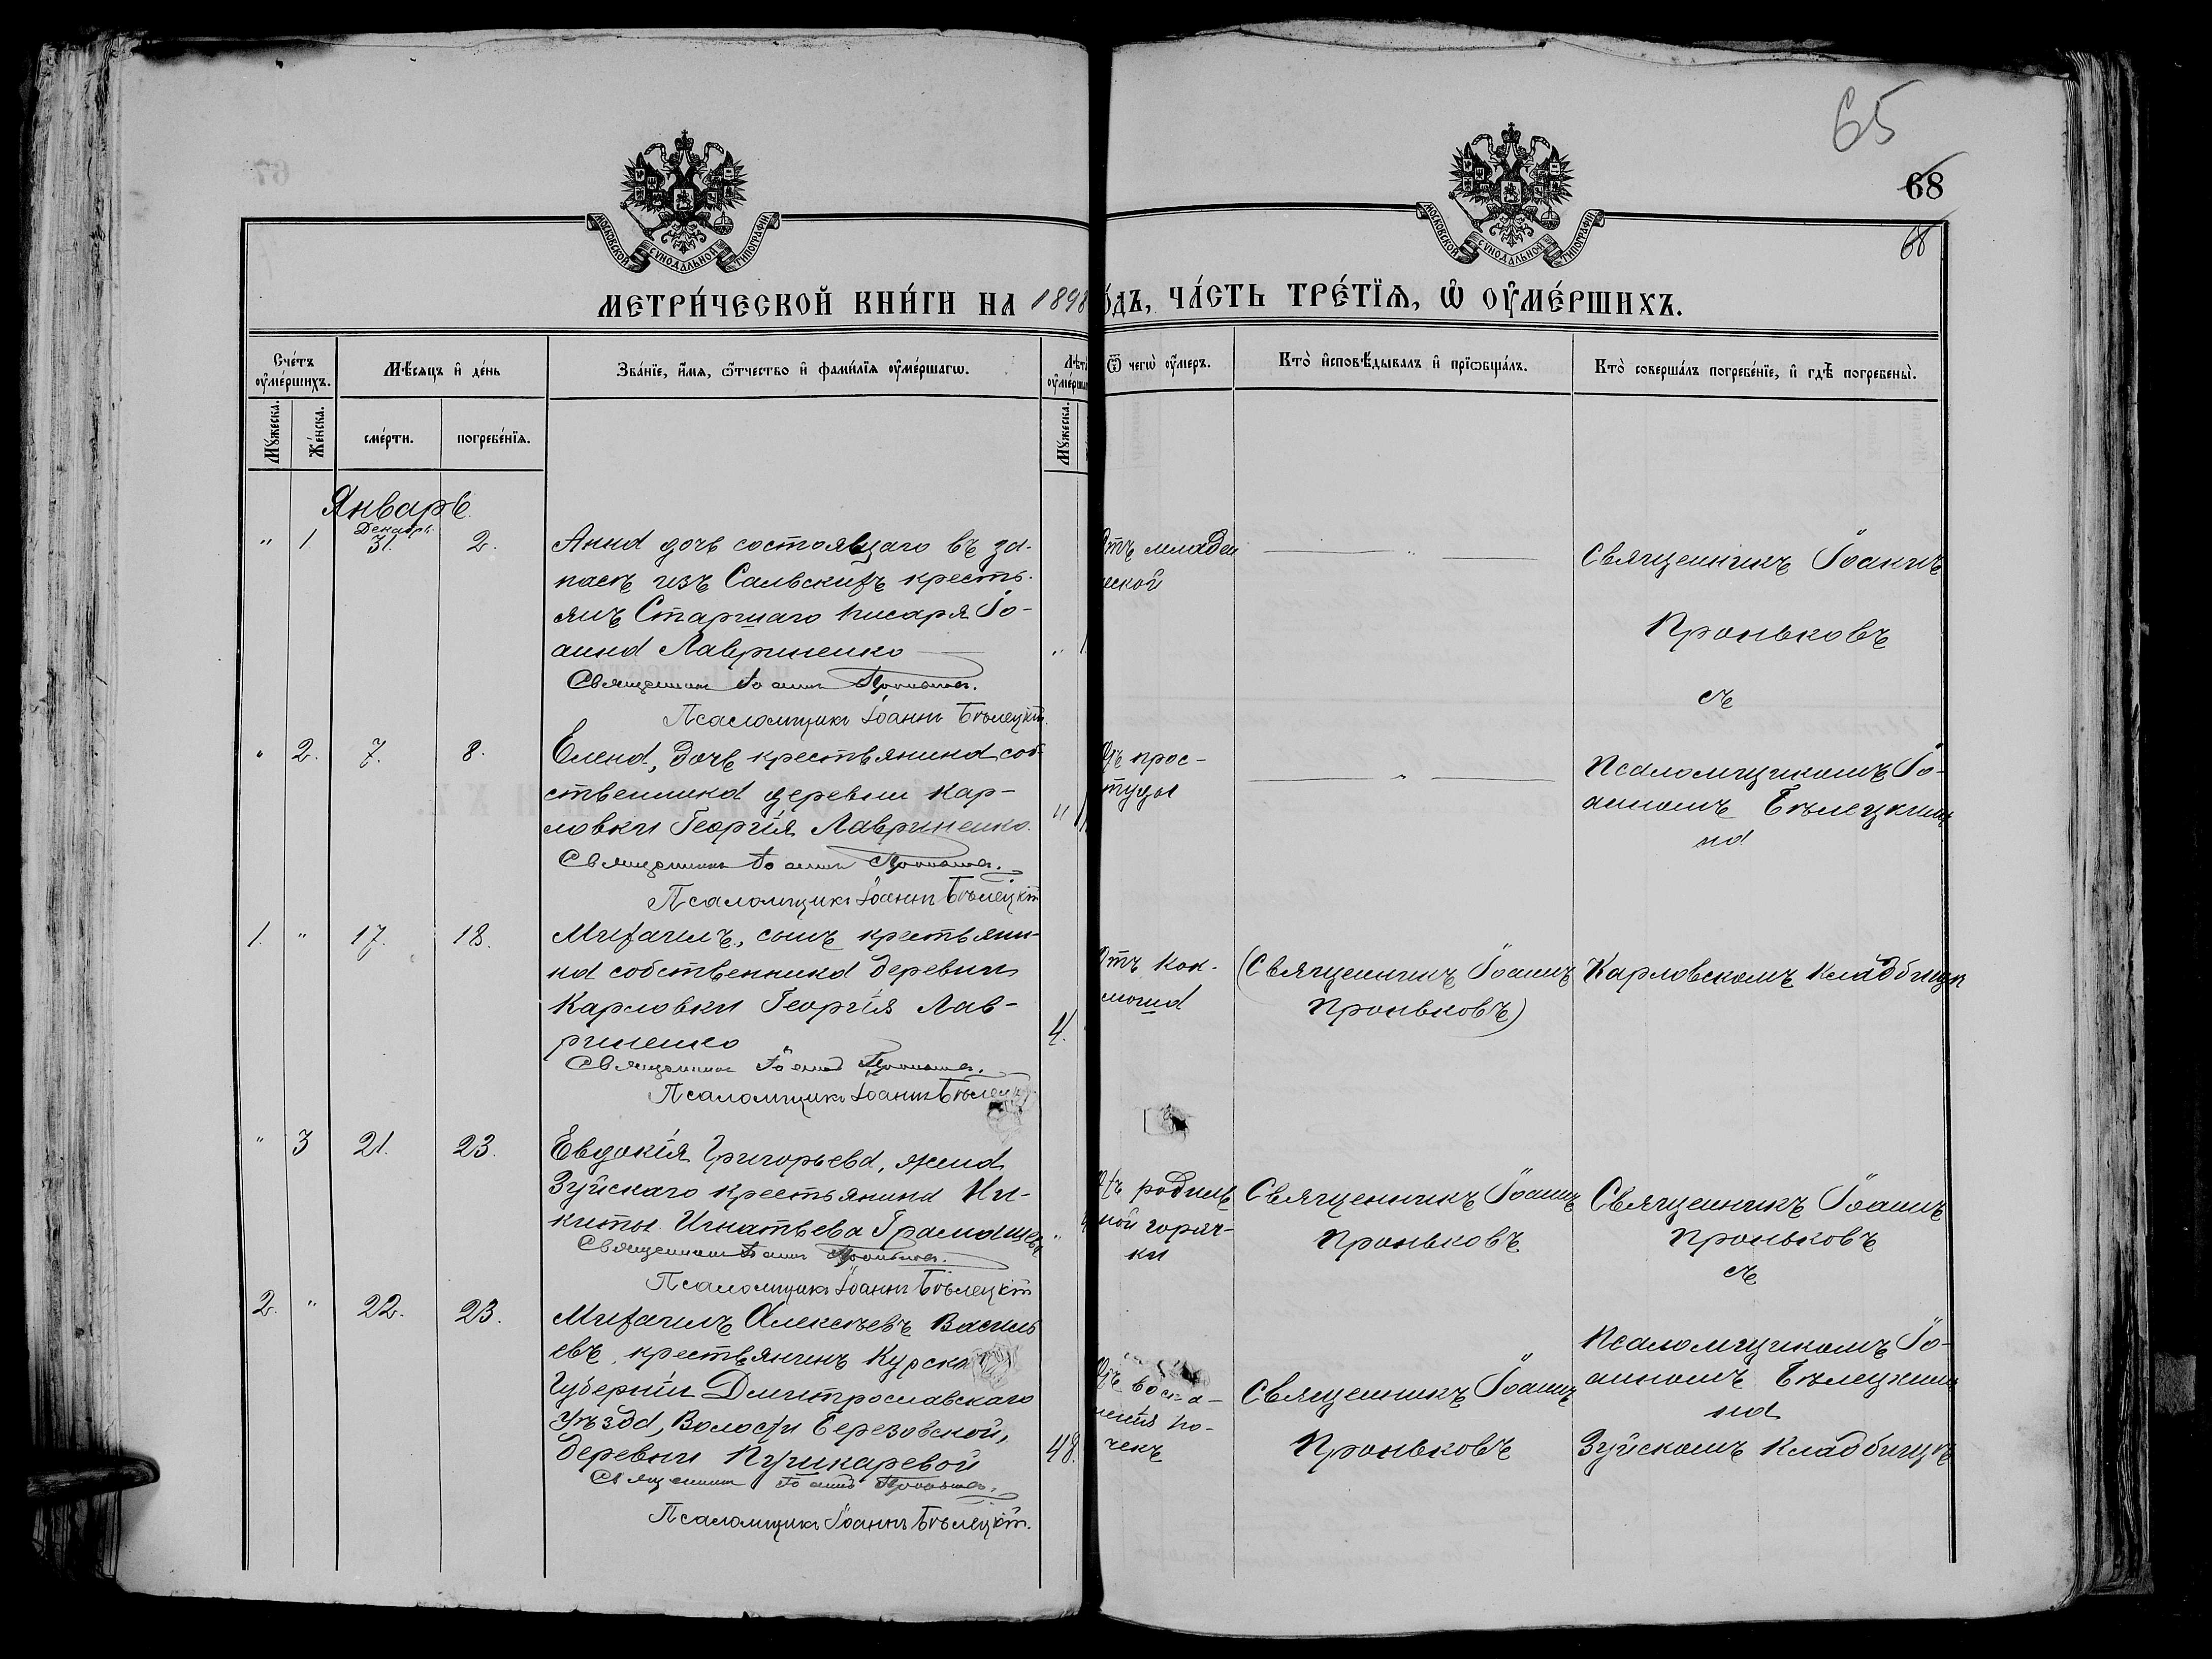 65
68
68
МОСКОВСКОЙ СѴНОДАЛЬНОЙ ТИПОГРАФІИ
МОСКОВСКОЙ СѴНОДАЛЬНОЙ ТИПОГРАФІИ
МЕТРИ́ЧЕСКОЙ КНИ́ГИ НА 1898
О́ДЪ, ЧА́СТЬ ТРЕ́ТЇѦ, Ѡ҆ ОУ҆МЕ́РШИХЪ.
Сче́тъ оу҆ме́ршихъ.
Мѣ́сяцъ и҆ де́нь
Зва́нїе, и҆́мя, ѻ҆́тчество и҆ фами́лїя оу҆ме́ршагѡ.
Лѣт
оу҆ме́рша
Ѿ чегѡ̀ оу҆́меръ.
Кто̀ и҆сповѣ́дывалъ и҆ прїѡбща́лъ.
Кто̀ соверша́лъ погребе́нїе, и҆ гдѣ̀ погребены̀.
Мꙋ́жеска.
Же́нска.
сме́рти.
погребе́нїя.
Мꙋ́жеска.
Январь
" 1. Декабрь 31. 2.
Анна дочь состоящаго въ за-
пасѣ изъ Сальскихъ кресть-
янъ Старшаго писаря Іо-
анна Лавриненко
Священникъ Іоаннъ Проньковъ.
Псаломщикъ Іоаннъ Бѣлецкій.
Отъ младен
ческой
Священникъ Іоаннъ
Проньковъ
съ
" 2. 7. 8.
Елена, дочь крестьянина соб-
ственника деревни Кар-
ловки Георгія Лавриненко.
Священникъ Іоаннъ Проньковъ.
Псаломщикъ Іоаннъ Бѣлецкій
прос-
туды
Псаломщикомъ Іо-
анномъ Бѣлецкимъ
на
1. " 17. 18.
Михаилъ, сынъ крестьяни-
на собственника деревни
Карловки Георгія Лав-
риненко
4.
Священникъ Іоаннъ Проньковъ.
Псаломщикъ Іоаннъ Бѣлецкій
Отъ кок-
люша
(Священникъ Іоаннъ
Проньковъ)
Карловскомъ кладбищѣ
" 3 21. 23.
Евдокія Григорьева, жена
Зуйскаго крестьянина Ни-
киты Игнатьева
Священникъ Іоаннъ Проньковъ.
Псаломщикъ Іоаннъ Бѣлецкій
родиль
ной горяч-
ки
Священникъ Іоаннъ
Проньковъ
Священникъ Іоаннъ
Проньковъ
съ
2. " 22. 23.
Михаилъ Алексѣевъ Василь
евъ, крестьянинъ Курской
Губерніи Дмитрославскаго
уѣзда, Волости Березовской,
деревни Пушкаревой
48.
Священникъ Іоаннъ Проньковъ.
Псаломщикъ Іоаннъ Бѣлецкій.
воспа-
ленія по-
чекъ
Священникъ Іоаннъ
Проньковъ
Псаломщикомъ Іо-
анномъ Бѣлецкимъ
на
Зуйскомъ кладбищѣ